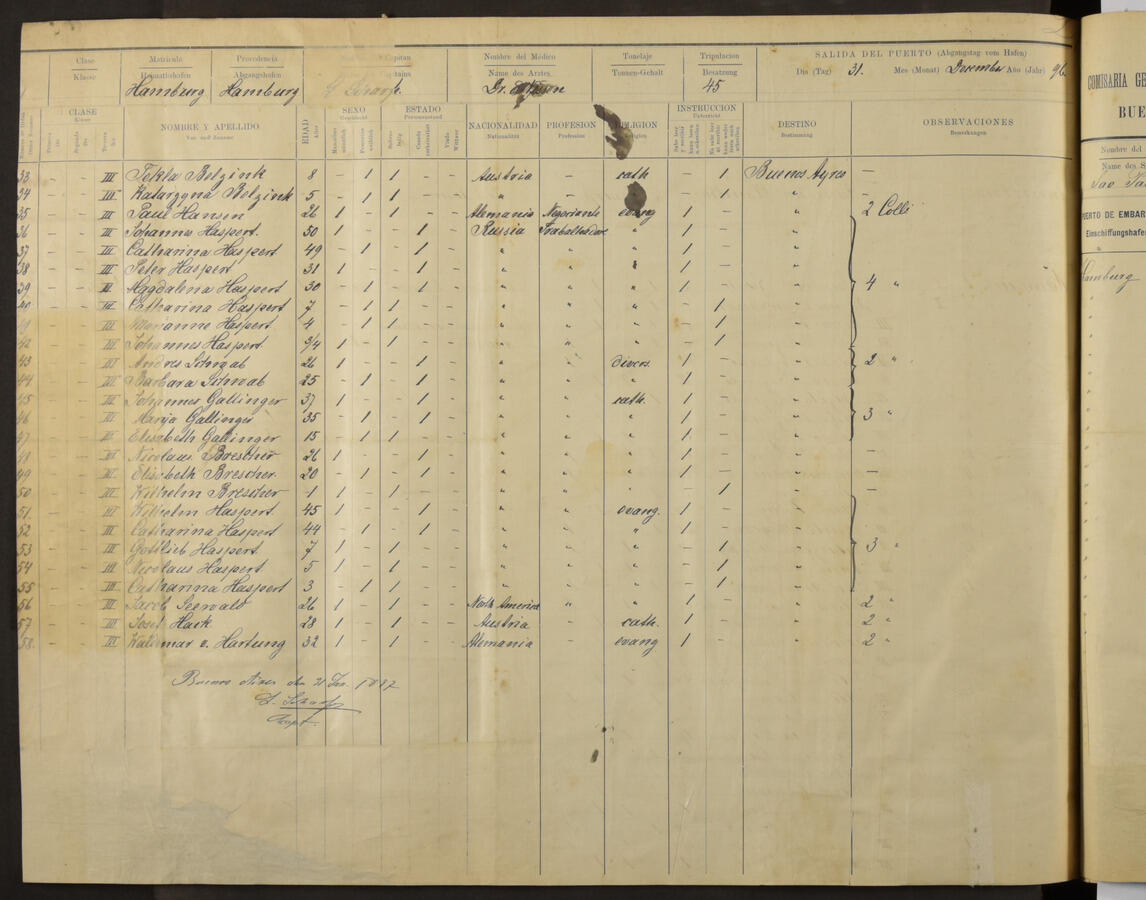 Clase Matricula Procedencia Capitan Nombre del Médico Tonelaje Tripulacion SALIDA DEL PUERTO (Abgangstag vom Hafen)
Klasse Heimathshafen Abgangshafen Name des Arztes Tonnen-Gehalt Besatzung Dia (Tag) 31. Mes (Monat) December Año (Jahr) 96
Hamburg Hamburg Scharfe Dr. 45
CLASE Klasse NOMBRE Y APELLIDO Vor- und Zuname EDAD Alter SEXO Geschlecht ESTADO Personenstand NACIONALIDAD Nationalität PROFESION Profession RELIGION Religion INSTRUCCION Unterricht DESTINO Bestimmung OBSERVACIONES Bemerkungen
33 - - III Tekla Belzink 8 - 1 1 - Austria - cath - 1 Buenos Ayres -
34 - - III Katarzyna Belzink 5 - 1 1 - " - - 1 " -
35 - - III Paul Hansen 26 1 - 1 - Alemania Negociante evang 1 - " 2 Colli
36 - - III Johannes Haspert. 50 1 - - 1 Russia " 1 - "
37 - - III Catharina Haspert 49 - 1 - 1 " " " 1 - "
38 - - III Peter Haspert 31 1 - - 1 " " " 1 - "
39 - - III Magdalena Haspert 30 - 1 - 1 " " " 1 - " 4 "
40 - - III Catharina Haspert 7 - 1 1 - " " " - 1 "
41 - - III Marianne Haspert 4 - 1 1 - " " " - 1 "
42 - - III Johannes Haspert 3/4 1 - 1 - " " " - 1 "
43 - - III Andres Schwab 26 1 - - 1 " " divers. 1 - " 2 "
44 - - III Barbara Schwab 25 - 1 - 1 " " " 1 - "
45 - - III Johannes Gallinger 37 1 - - 1 " " cath. 1 - "
46 - - III Marija Gallinger 35 - 1 - 1 " " " 1 - " 3 "
47 - - III Elisabeth Gallinger 15 - 1 1 - " " " 1 - "
48 - - III Nicolaus Brescher 26 1 - - 1 " " " 1 - " -
49 - - III Elisabeth Brescher. 20 - 1 - 1 " " " 1 - " -
50 - - III Wilhelm Brescher 1 1 - 1 - " " " - 1 " -
51. - - III Wilhelm Haspert. 45 1 - - 1 " " evang. 1 - "
52 - - III Catharina Haspert 44 - 1 - 1 " " " 1 - "
53 - - III Gottlieb Haspert. 7 1 - 1 - " " " - 1 " 3 "
54 - - III Nicolaus Haspert 5 1 - 1 - " " " - 1 "
55 - - III Catharina Haspert 3 - 1 1 - " " " - 1 "
56 - - III Jacob Seewald 26 1 - 1 - North America " " 1 - " 2 "
57 - - III Josef Hack 28 1 - 1 - Austria - cath. 1 - " 2 "
58. - - III Waldemar v. Hartung 32 1 - 1 - Alemania - evang 1 - " 2 "
Buenos Aires den 21 Jan. 1897
Scharfe
Capt.
COMISARIA GE
BUE
Nombre del
Name des S
PUERTO DE EMBAR
Einschiffungshafe
Hamburg